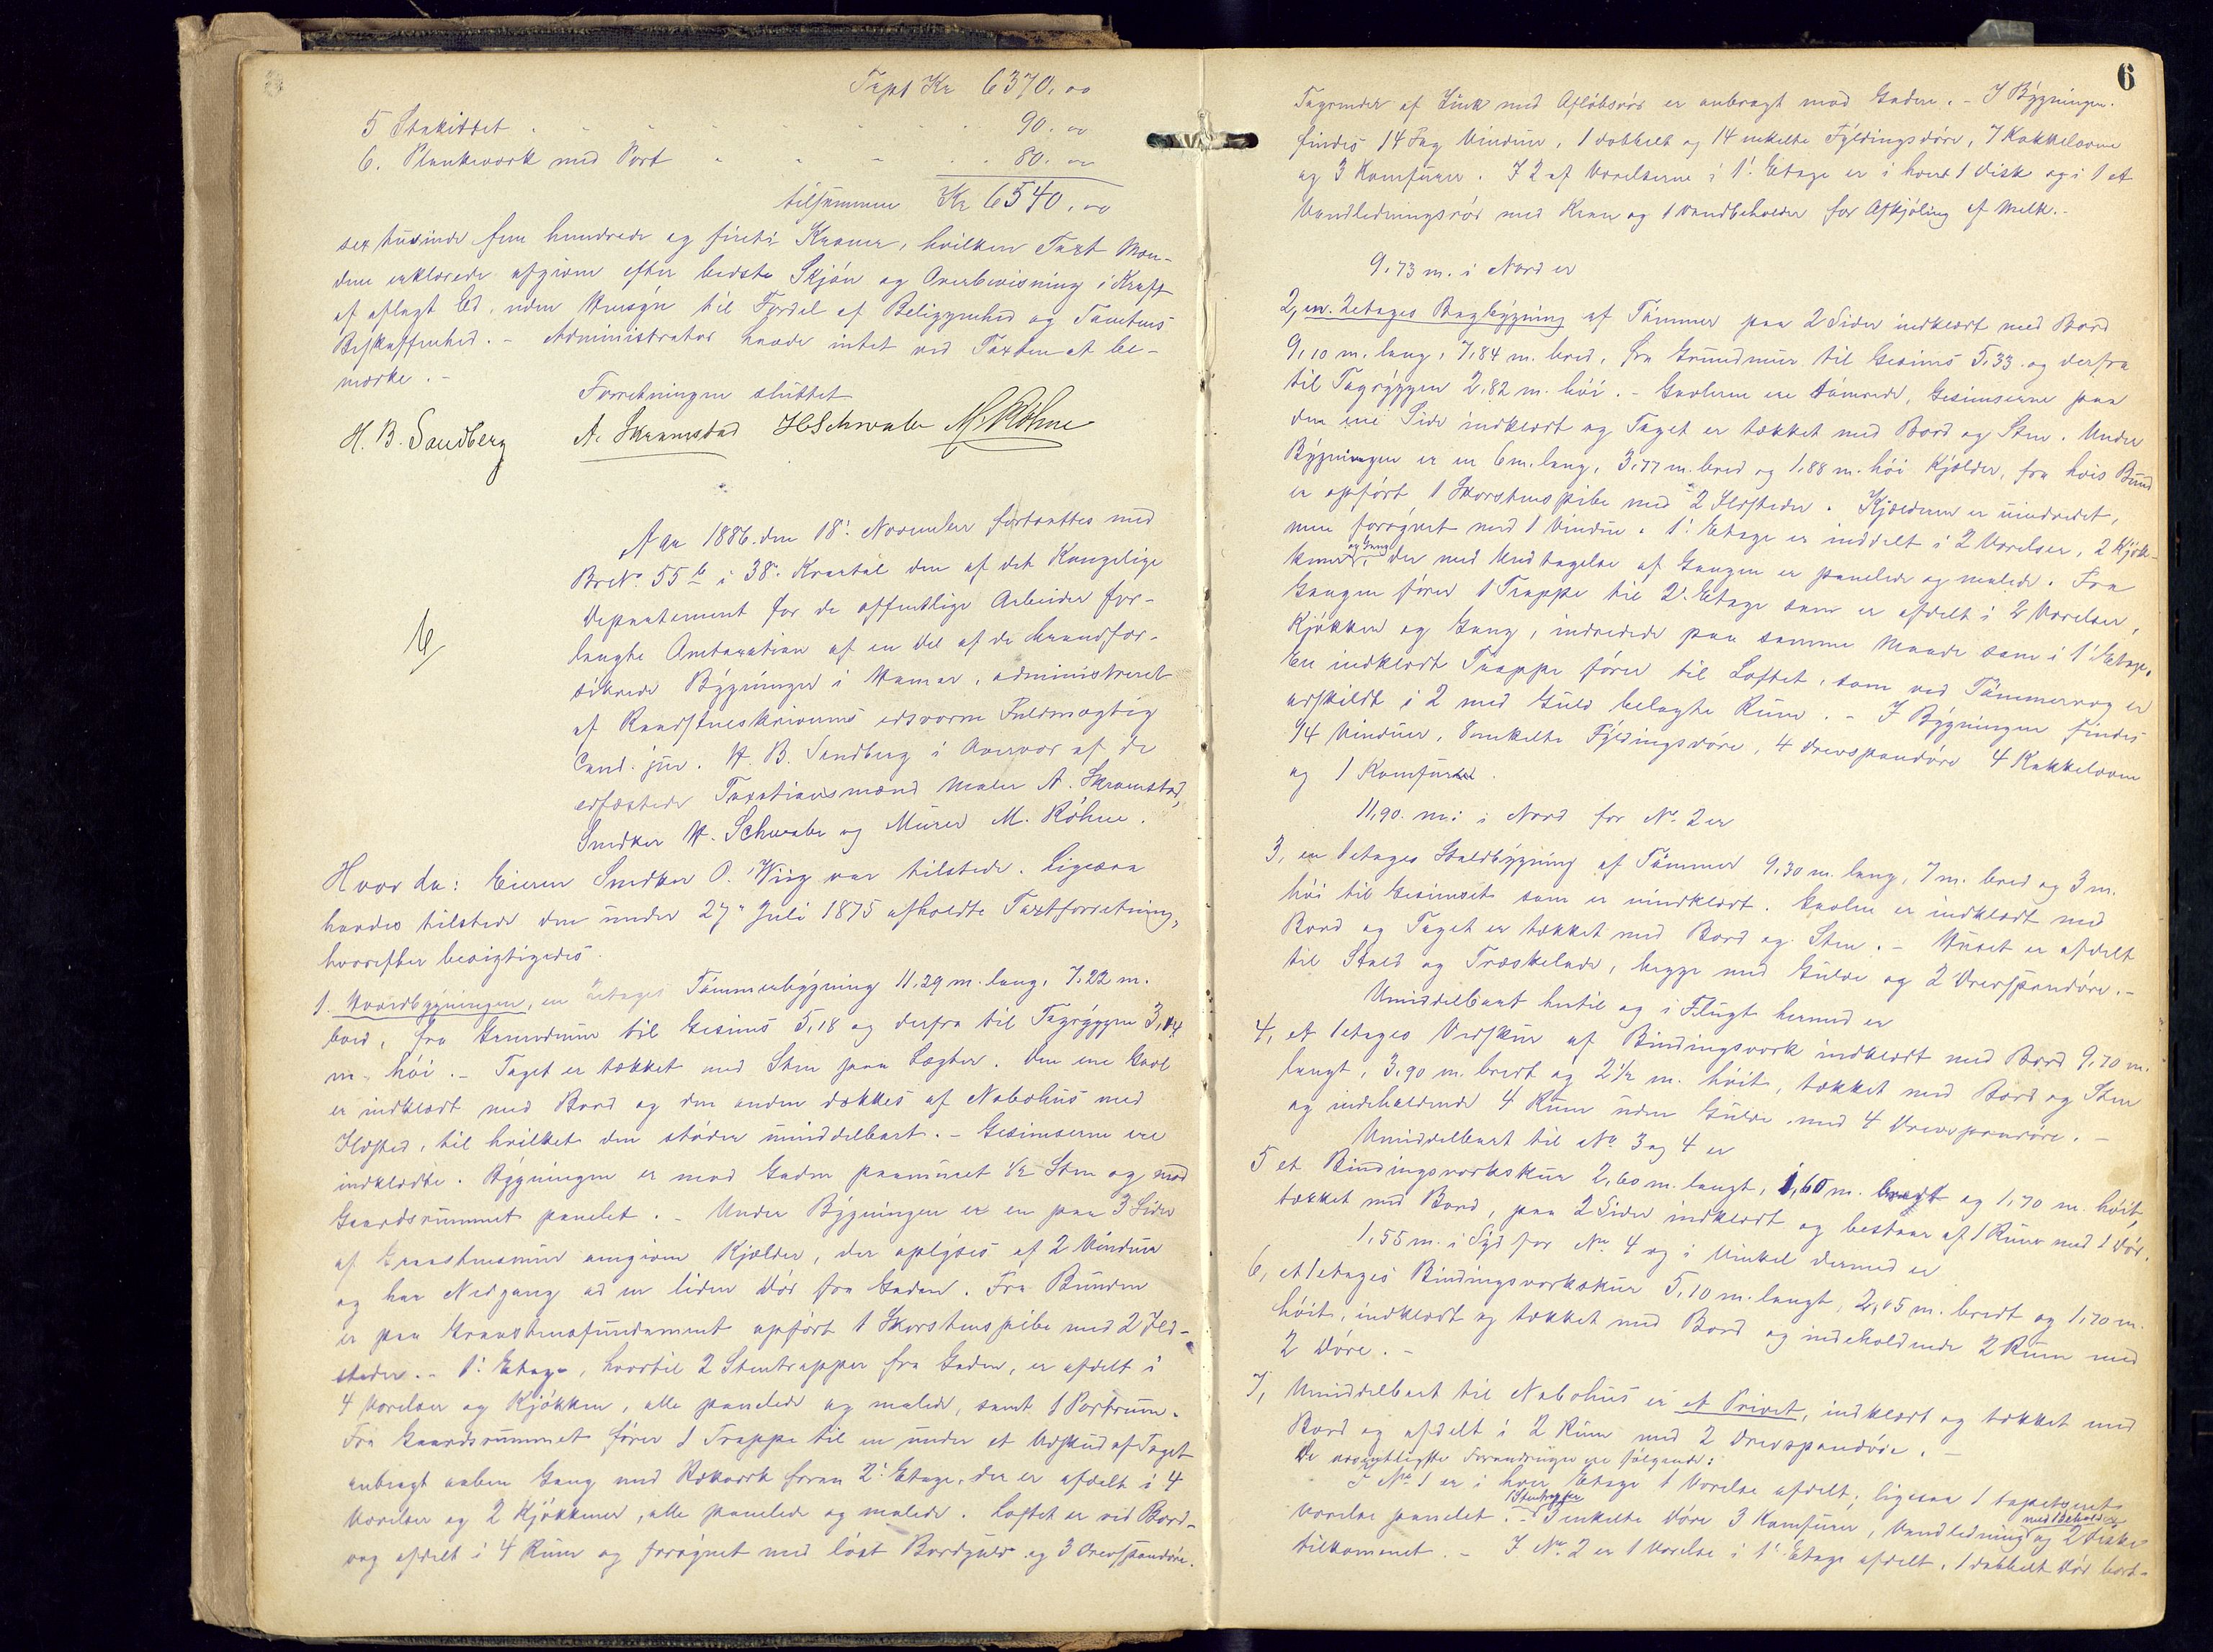 Tapt Kr 6370.00
5 Stakittet 90.00
6. Plankeværk med Port 80.00
tilsammen Kr 6540.00
sex tusinde fem hundrede og firti Kroner, hvilken Taxt Mæn-
dene erklærede afgiven efter bedste Skjøn og Overbevisning i Kraft
af aflagt Ed, uden Hensyn til Fordel af Beliggenhed og Tomtens
Beskaffenhed. - Administrator havde intet ved Taxten at be-
mærke. -
Forretningen sluttet
H. B. Sandberg A. Skramstad H Schwabe M. Röhne
Aar 1886 den 18' November fortsattes med
BrNo. 55 b i 38' Kvartal den af det Kongelige
Departement for de offentlige Arbeider for-
langte Omtaxation af en Del af de brandfor-
sikrede Bygninger i Hamar, administreret
af Raadstueskriverens edsvorne Fuldmægtig
Cand. jur. H. B. Sandberg i Overvær af de
edfæstede Taxationsmænd Maler A. Skramstad,
Snedker H. Schwabe og Murer M. Röhne.
Hvor da: Eieren Snedker O. Wiig var tilstede. Ligesaa
havdes tilstede den under 27' Juli 1875 afholdte Taxtforretning,
hvorefter besigtigedes.
1. Hovedbygningen, en 2etages Tømmerbygning 11,29 m. lang, 7,22 m.
bred, fra Grundmur til Gesims 5,18 og derfra til Tagryggen 3,14
m. høi. - Taget er tækket med Sten paa Lægter. Den ene Gavl
er indklædt med Bord og den anden dækkes af Nabohus med
Ildsted, til hvilket den støder umiddelbart. - Gesimserne ere
indklædte. Bygningen er mod Gaden paamuret 1/2 Sten og mod
Gaardsrummet panelet. - Under Bygningen er en paa 3 Sider
af Graastensmur omgiven Kjælder, der oplyses af 2 Vinduer
og har Nedgang ad en liden Dør fra Gaden. Fra Bunden
er paa Graastensfundament opført 1 Skorstenspibe med 2 Ild-
steder. - 1' Etage, hvortil 2 Stentrapper fra Gaden, er afdelt i
4 Værelser og Kjøkken, alle panelede og malede, samt 1 Portrum.
Fra Gaardsrummet fører 1 Trappe til en under et Udskud af Taget
anbragt aaben Gang med Rækværk foran 2' Etage, der er afdelt i 4
Værelser og 2 Kjøkkener, alle panelede og malede. Loftet er ved Bord-
væg afdelt i 4 Rum og forsynet med løst Bordgulv og 3 Drevspandøre.
6
Tagrender af Sink med Afløbsrør er anbragt mod Gaden. - I Bygningen
findes 14 Fag Vinduer, 1 dobbelt og 14 enkelte Fyldingsdøre, 7 Kakkelovne
og 3 Komfurer. I 2 af Værelserne i 1' Etage er i hvert 1 Disk og i 1 et
Vandledningsrør med Kran og 1 Vandbeholder for Afkjøling af Melk. -
9,73 m. i Nord er
2, en 2etages Bagbygning af Tømmer paa 2 Sider indklædt med Bord
9,10 m. lang, 7,84 m. bred, fra Grundmur til Gesims 5,33 og derfra
til Tagryggen 2,82 m. høi. - Gavlerne ere tømrede, Gesimserne paa
den ene Side indklædt og Taget er tækket med Bord og Sten. Under
Bygningen er en 6 m. lang, 3,77 m. bred og 1,88 m. høi Kjælder, fra hvis Bund
er opført 1 Skorstenspibe med 2 Ildsteder. Kjælderen er uindredet,
men forsynet med 1 Vindue. 1' Etage er inddelt i 2 Værelser, 2 Kjøk-
kener og Gang, der med Undtagelse af Gangen er panelede og malede. Fra
Gangen fører 1 Trappe til 2' Etage som er afdelt i 2 Værelser,
Kjøkken og Gang, indredede paa samme Maade som i 1' Etage.
En indklædt Trappe fører til Loftet, som ved Tømmervæg er
adskildt i 2 med Gulv belagte Rum. - I Bygningen findes
14 Vinduer, 8 enkelte Fyldingsdøre, 4 Drevspandøre 4 Kakkelovne
og 1 Komfur.
11,90 m. i Nord for No. 2 er
3, en 1etages Staldbygning af Tømmer 9,30 m. lang, 7 m. bred og 3 m.
høi til Gesimset som er uindklædt. Gavlen er indklædt med
Bord og Taget er tækket med Bord og Sten. - Huset er afdelt
til Stald og Træskelade, begge med Gulve og 2 Drevspandøre. -
Umiddelbart hertil og i Flugt hermed er
4, et 1etages Vedskur af Bindingsværk indklædt med Bord 9,70 m.
langt, 3,90 m. bredt og 2 1/2 m. høit, tækket med Bord og Sten
og indeholdende 4 Rum uden Gulve, med 4 Drevspandøre. -
Umiddelbart til No. 3 og 4 er
5 et Bindingsværkskur 2,60 m. langt, 1,60 m. bredt og 1,70 m. høit,
tækket med Bord, paa 2 Sider indklædt og bestaar af 1 Rum med 1 Dør.
1,55 m. i Syd for No. 4 og i Vinkel dermed er
6, et 1etages Bindingsværkskur 5,10 m. langt, 2,05 m. bredt og 1,70 m.
høit, indklædt og tækket med Bord og indeholdende 2 Rum med
2 Døre. -
7, Umiddelbart til Nabohus er et Privet, indklædt og tækket med
Bord og afdelt i 2 Rum med 2 Drevspandøre. -
De væsentligste Forandringer ere følgende:
I No. 1 er i hver Etage 1 Værelse afdelt; ligesaa 1 tapetseret
Værelse panelet. - 1 Stentrappe 3 enkelte Døre 3 Komfurer, Vandledning med Beholder og 2 Diske
tilkommet. - I No. 2 er 1 Værelse i 1' Etage afdelt, 1 dobbelt Dør bort-